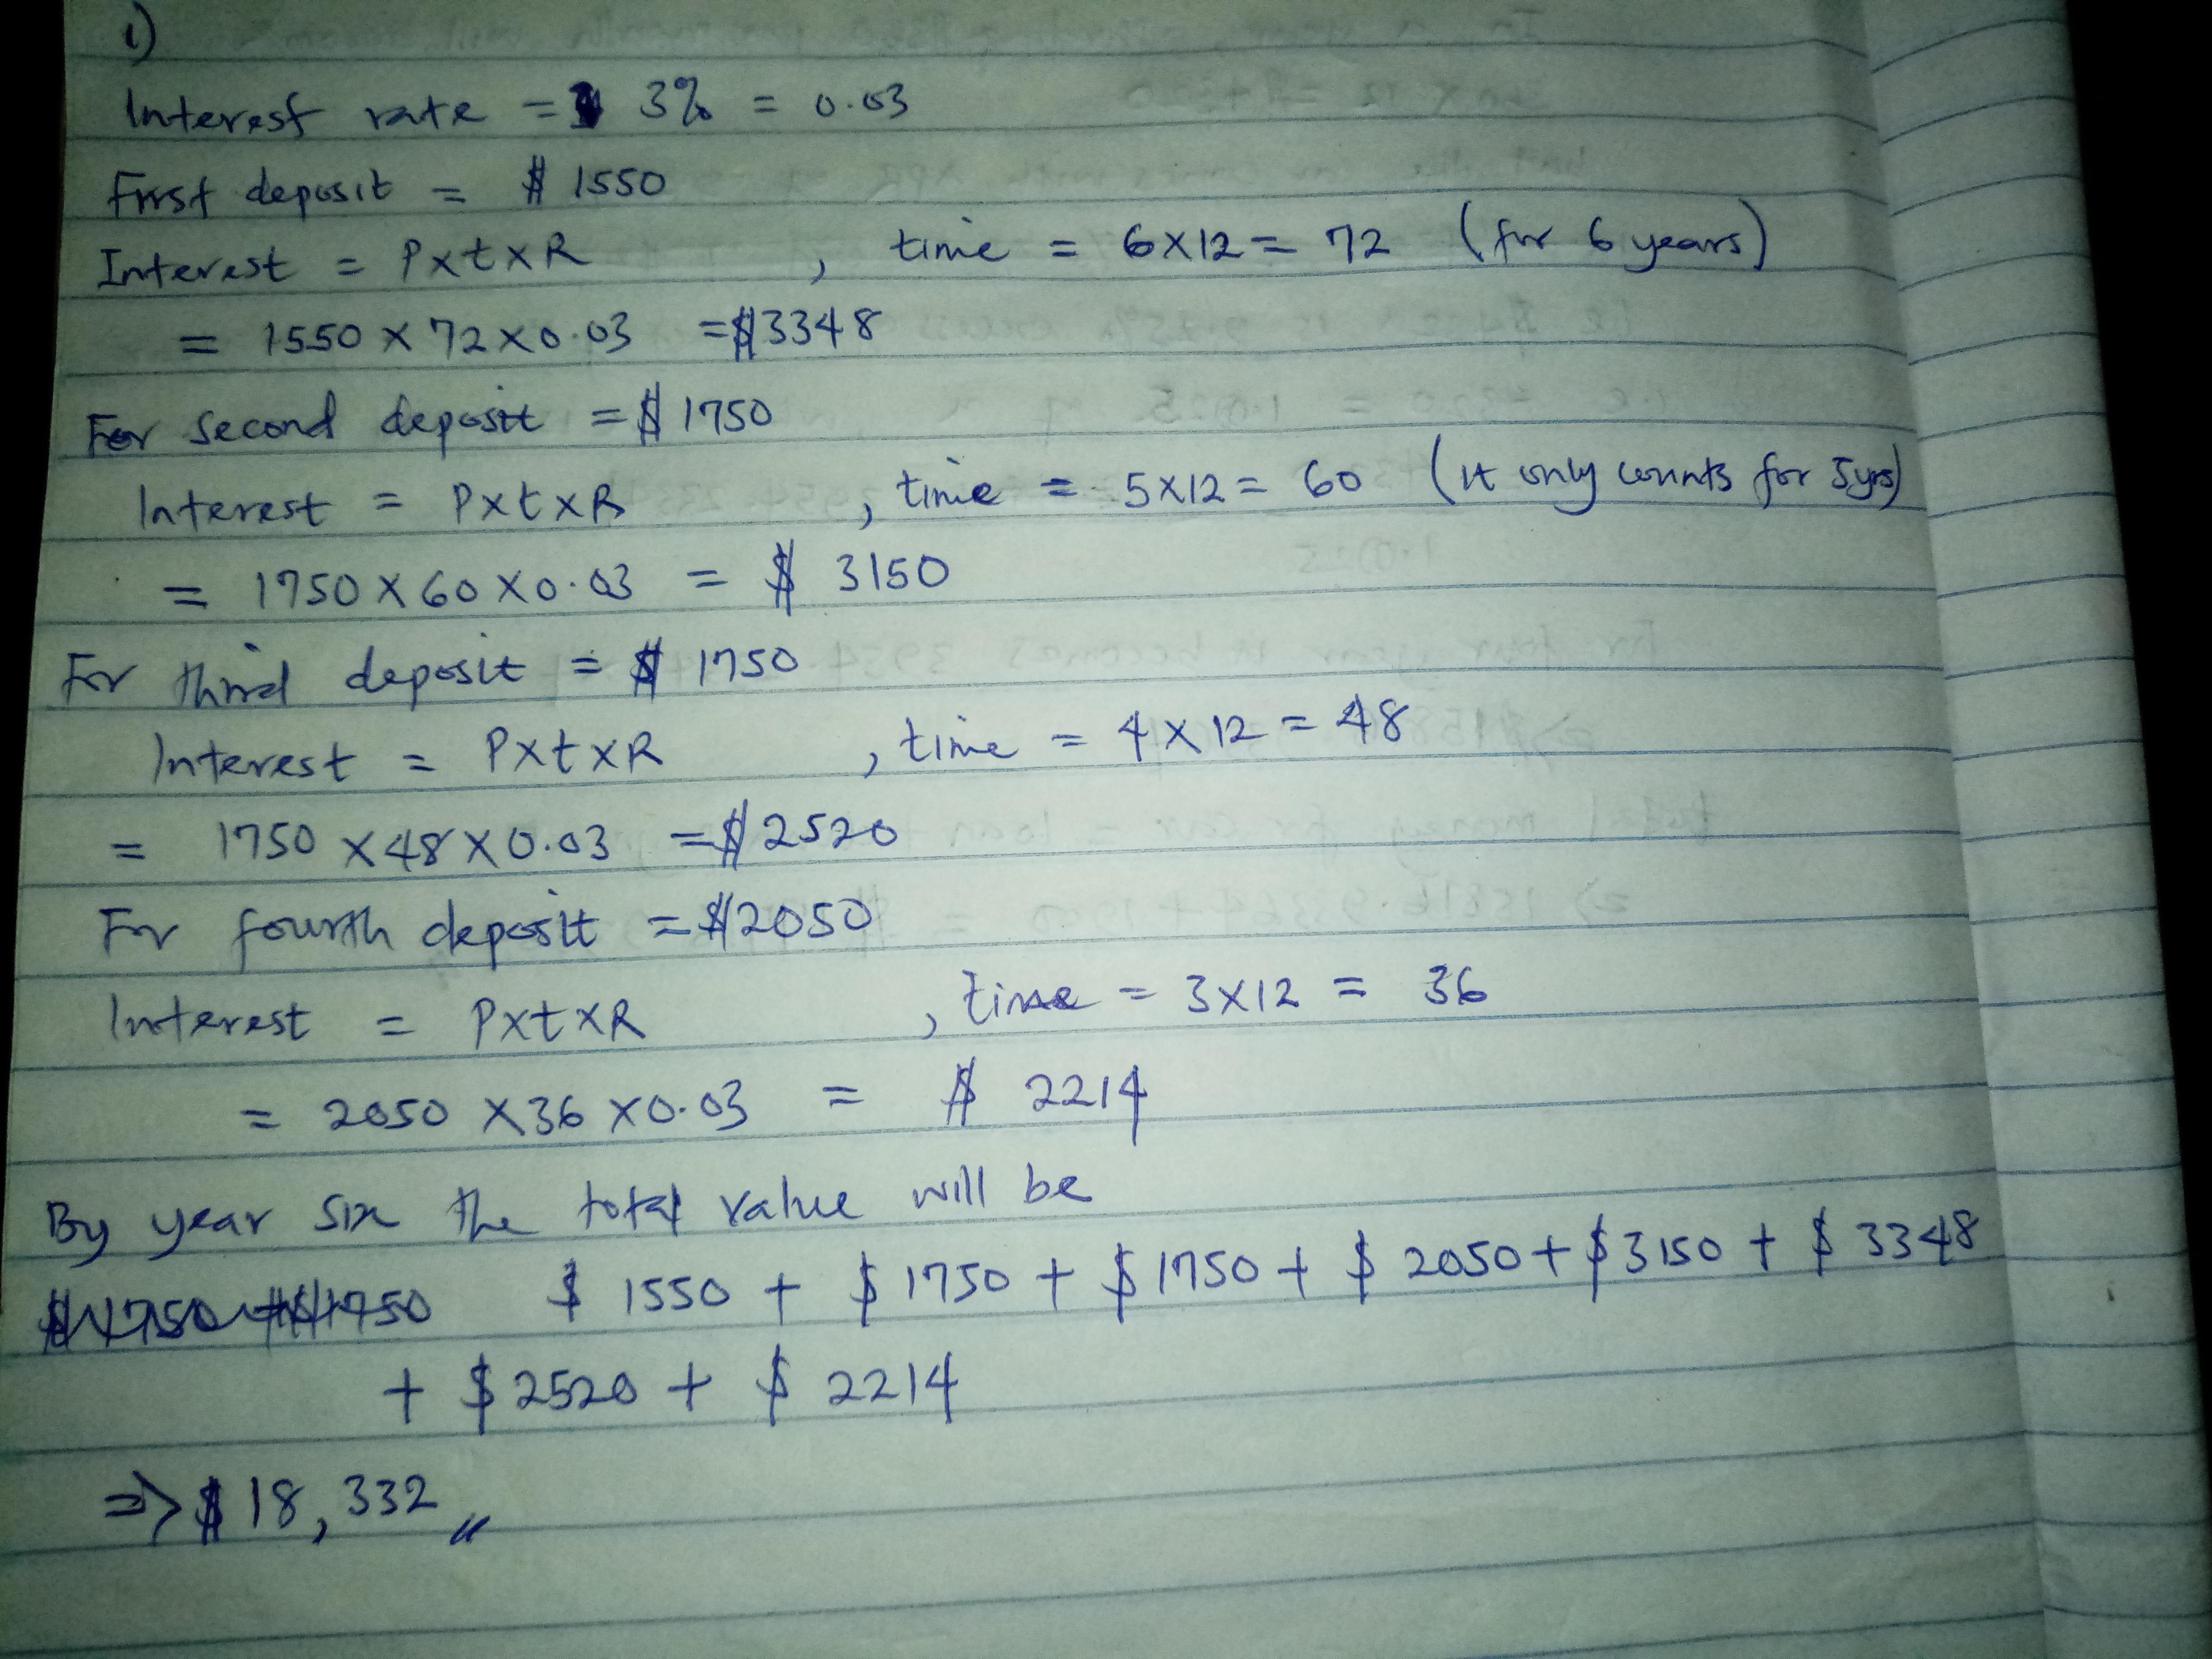 1)
Interest rate = 3% = 0.03
First deposit = $ 1550
Interest = P x t x R , time = 6 x 12 = 72 (for 6 years)
= 1550 x 72 x 0.03 = $ 3348
For second deposit = $ 1750
Interest = P x t x R , time = 5 x 12 = 60 (it only counts for 5yrs)
= 1750 x 60 x 0.03 = $ 3150
For third deposit = $ 1750
Interest = P x t x R , time = 4 x 12 = 48
= 1750 x 48 x 0.03 = $ 2520
For fourth deposit = $ 2050
Interest = P x t x R , time = 3 x 12 = 36
= 2050 x 36 x 0.03 = $ 2214
By year six the total value will be
$1750 + $1750 $ 1550 + $ 1750 + $ 1750 + $ 2050 + $ 3150 + $ 3348
+ $ 2520 + $ 2214
=> $ 18,332